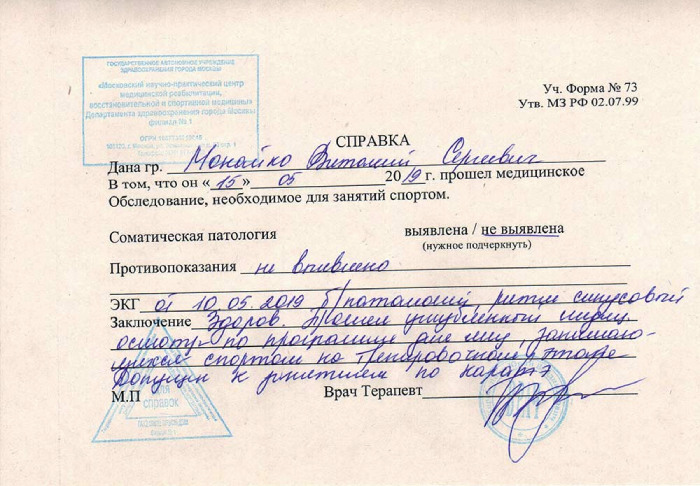 ГОСУДАРСТВЕННОЕ АВТОНОМНОЕ УЧРЕЖДЕНИЕ
ЗДРАВООХРАНЕНИЯ ГОРОДА МОСКВЫ
«Московский научно-практический центр
медицинской реабилитации,
восстановительной и спортивной медицины»
Департамента здравоохранения города Москвы
филиал № 1
Уч. Форма № 73
Утв. МЗ РФ 02.07.99
СПРАВКА
Дана гр. Монайко Виталий Сергеевич
В том, что он «15» 05 2019 г. прошел медицинское
Обследование, необходимое для занятий спортом.
Соматическая патология выявлена / не выявлена
(нужное подчеркнуть)
Противопоказания не выявлено
ЭКГ от 10.05.2019 б/патологий, ритм синусовый
Заключение Здоров. Прошел углубленный
осмотр по программе для лиц, занимаю-
щихся спортом на тренировочном этапе
Допущен к участием по каратэ
М.П Врач Терапевт
справок